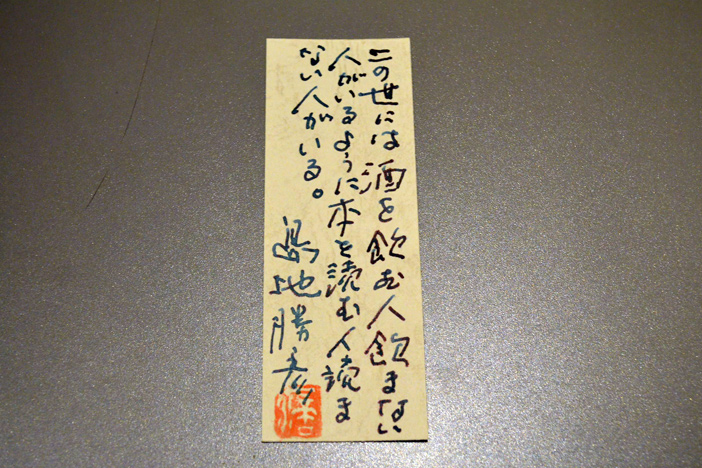 この世には酒を飲む人飲まない
人がいるように本を読む人読ま
ない人がいる。
島地勝彦